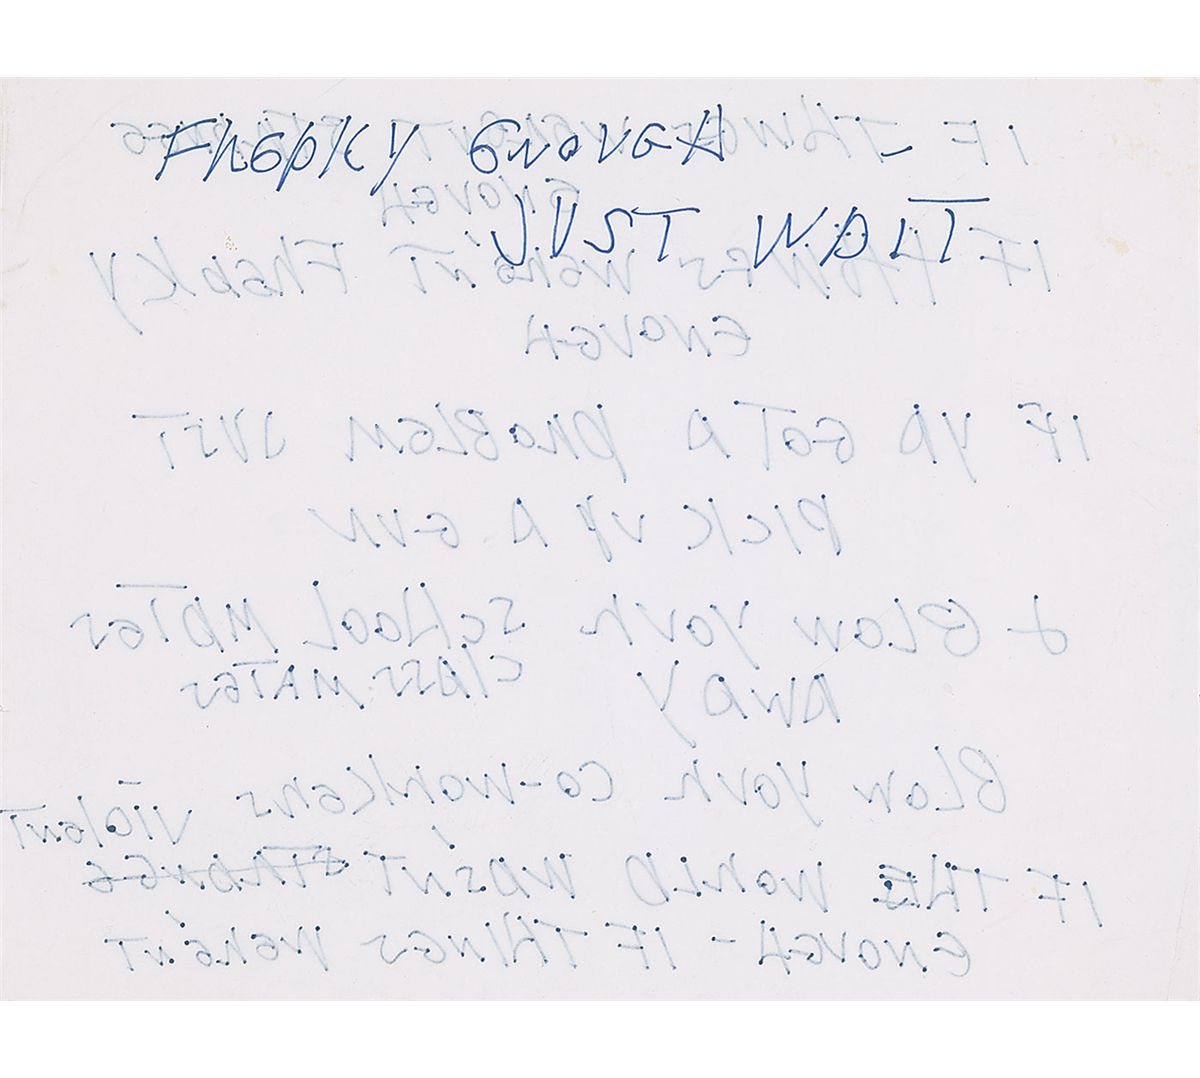 FREAKY ENOUGH –
JUST WAIT
IF THINGS
ENOUGH
IF THINGS WERE'NT FREAKY
ENOUGH
IF YA GOT A PROBLEM JUST
PICK UP A GUN
+ BLOW YOUR SCHOOL MATES
AWAY CLASSMATES
BLOW YOUR CO-WORKERS
VIOLENT
IF THE WORLD WAS'NT STRANGE
ENOUGH – IF THINGS WERE'NT